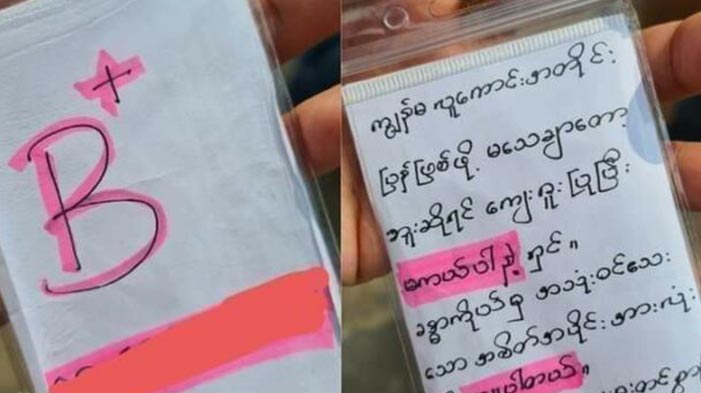 B+
ကျွန်မ လူကောင်းအတိုင်း
ပြန်ဖြစ်ဖို့ မသေချာတော့
ဘူးဆိုရင် ကျေးဇူးပြုပြီး
မကယ်ပါနဲ့ ရှင်။
ခန္ဓာကိုယ်မှ အသုံးဝင်သေး
သော အစိတ်အပိုင်း အားလုံး